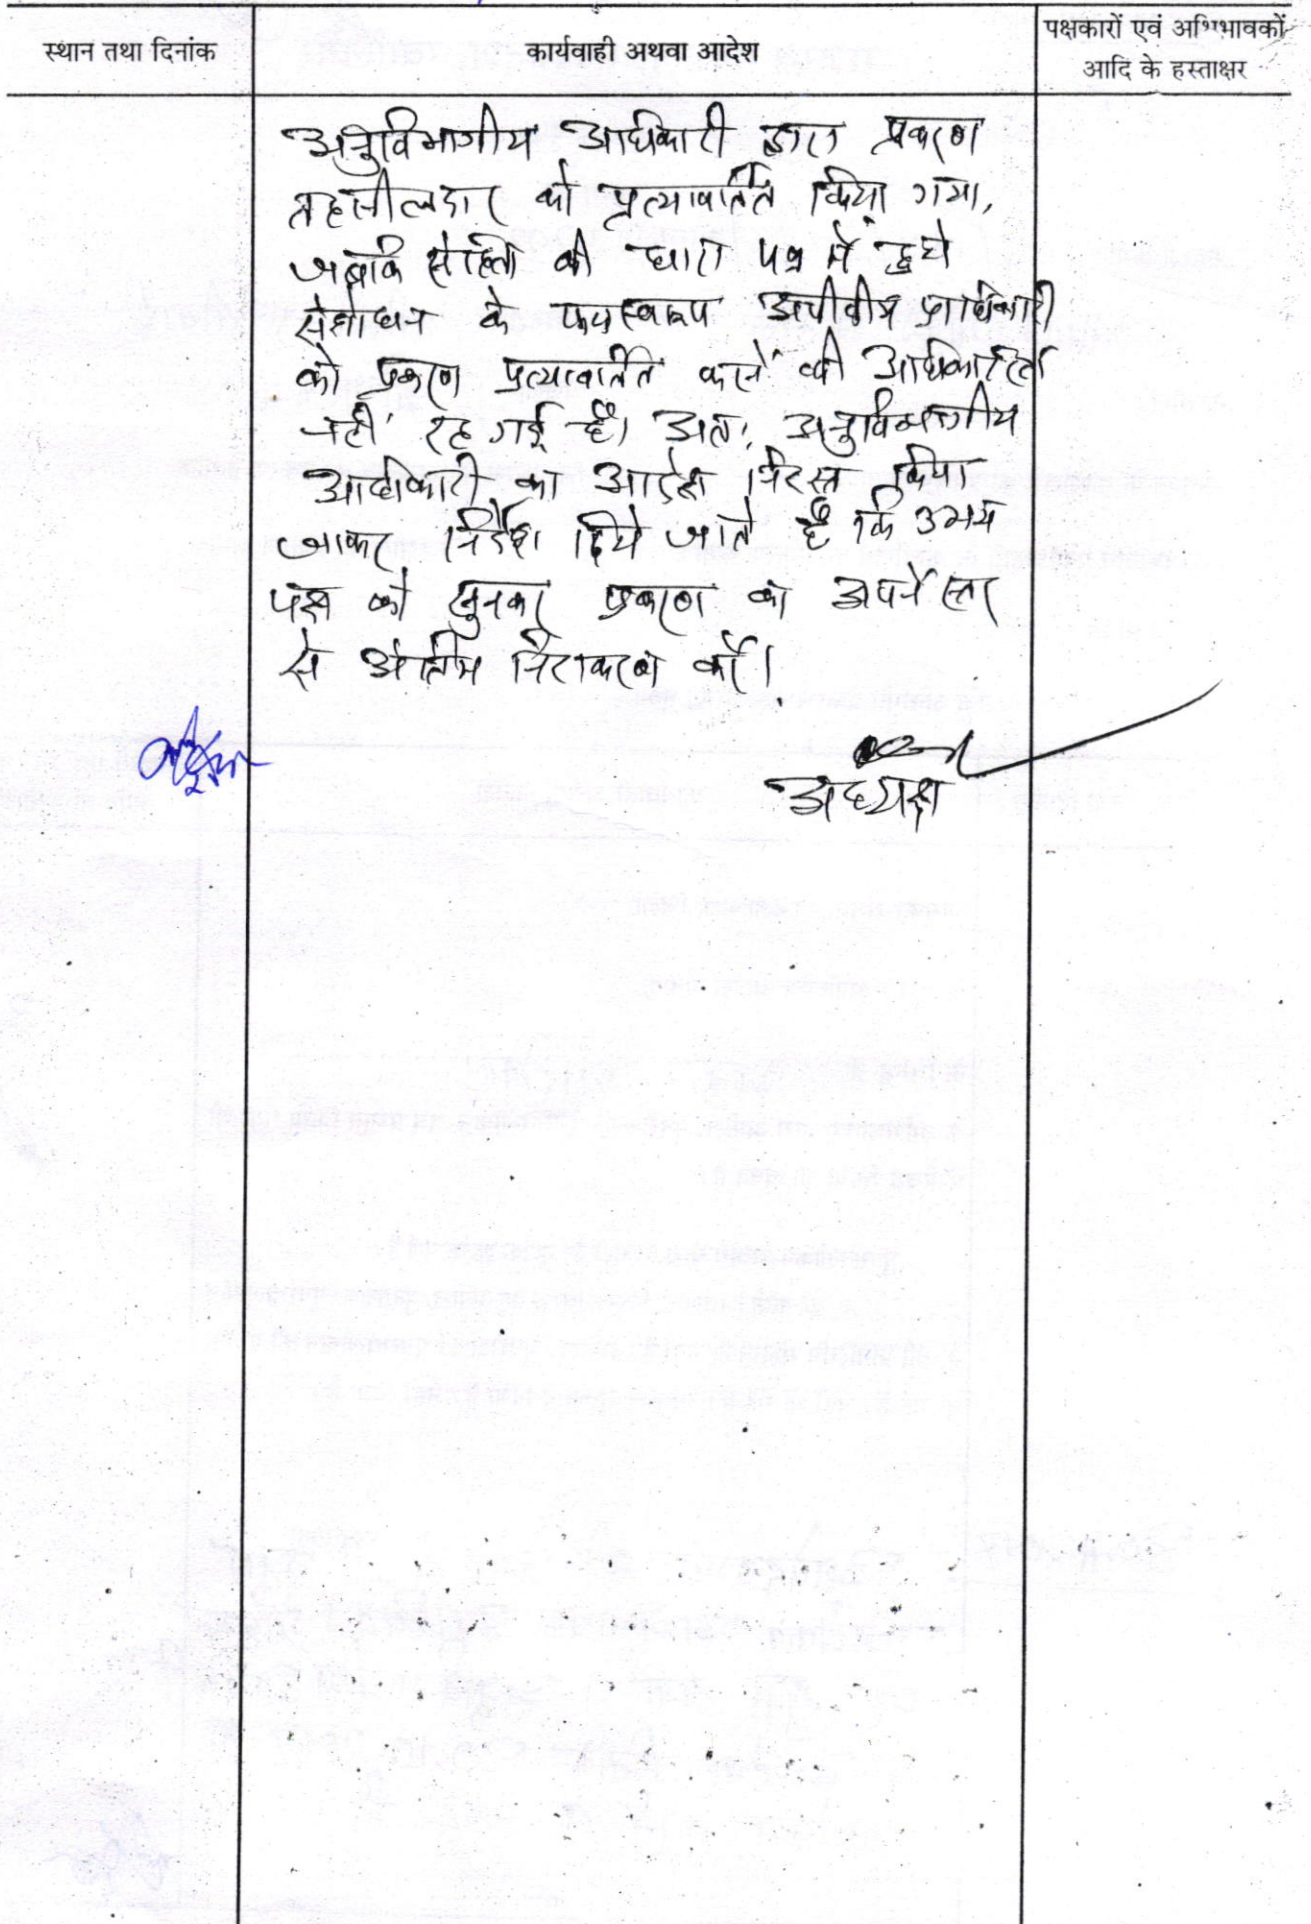 स्थान तथा दिनांक
कार्यवाही अथवा आदेश
पक्षकारों एवं अभिभावकों
आदि के हस्ताक्षर
अनुविभागीय अधिकारी द्वारा प्रकरण
तहसीलदार को प्रत्यावर्तित किया गया,
जबकि संहिता की धारा ४९ में हुये
संशोधन के फलस्वरूप अपीलीय प्राधिकारी
को प्रकरण प्रत्यावर्तित करने की अधिकारिता
नहीं रह गई है। अतः अनुविभागीय
अधिकारी का आदेश निरस्त किया
जाकर निर्देश दिये जाते हैं कि उभय
पक्ष को सुनकर प्रकरण का अपने स्तर
से अंतिम निराकरण करें।
अध्यक्ष